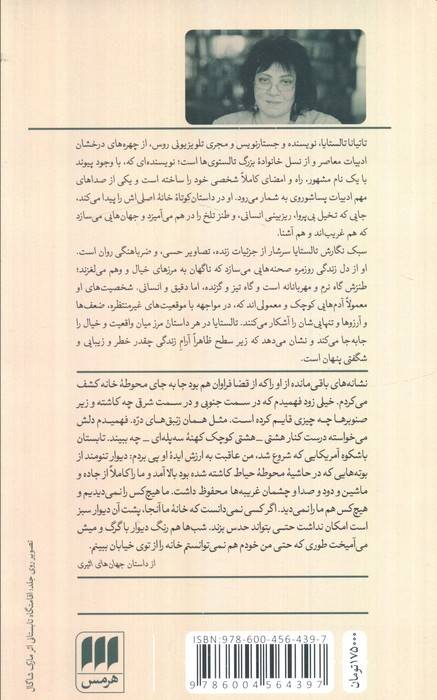 تاتیانا تالستایا، نویسنده و جستارنویس و مجری تلویزیونی روس، از چهره‌های درخشان
ادبیات معاصر و از نسل خانوادهٔ بزرگ تالستوی‌ها است؛ نویسنده‌ای که، با وجود پیوند
با یک نام مشهور، راه و امضای کاملاً شخصی خود را ساخته است و یکی از صداهای
مهم ادبیات پساشوروی به شمار می‌رود. او در داستان کوتاه خانهٔ اصلی‌اش را پیدا می‌کند،
جایی که تخیل بی‌پروا، ریزبینی انسانی، و طنز تلخ را در هم می‌آمیزد و جهان‌هایی می‌سازد
که هم غریب‌اند و هم آشنا.
سبک نگارش تالستایا سرشار از جزئیات زنده، تصاویر حسی، و ضرباهنگی روان است.
او از دل زندگی روزمره صحنه‌هایی می‌سازد که ناگهان به مرزهای خیال و وهم می‌لغزند؛
طنزش گاه نرم و مهربانانه است و گاه تیز و گزنده، اما دقیق و انسانی. شخصیت‌های او
معمولاً آدم‌هایی کوچک و معمولی‌اند که، در مواجهه با موقعیت‌های غیرمنتظره، ضعف‌ها
و آرزوها و تنهایی‌شان را آشکار می‌کنند. تالستایا در هر داستان مرز میان واقعیت و خیال را
جابه‌جا می‌کند و نشان می‌دهد که زیر سطح ظاهراً آرام زندگی چقدر خطر و زیبایی و
شگفتی پنهان است.
نشانه‌های باقی‌مانده از او را که از قضا فراوان هم بود جا به جای محوطهٔ خانه کشف
می‌کردم. خیلی زود فهمیدم که در سمت جنوبی و در سمت شرقی چه کاشته و زیر
صنوبرها چه چیزی قایم کرده است. مثل همان زنبق‌های درّه. فهمیدم دلش
می‌خواسته درست کنار هشتی ـ هشتی کوچک کهنهٔ سه‌پله‌ای ـ چه ببیند. تابستان
باشکوه آمریکایی که شروع شد، من عاقبت به ارزش ایدهٔ او پی بردم: دیوار تنومند از
بوته‌هایی که در حاشیهٔ محوطهٔ حیاط کاشته شده بود بالا آمد و ما را کاملاً از جاده و
ماشین و دود و صدا و چشمان غریبه‌ها محفوظ داشت. ما هیچ‌کس را نمی‌دیدیم و
هیچ‌کس هم ما را نمی‌دید. اگر کسی نمی‌دانست که خانهٔ ما آنجا، پشت آن دیوار سبز
است امکان نداشت حتی بتواند حدس بزند. شب‌ها هم رنگ دیوار با گرگ و میش
می‌آمیخت طوری که حتی من خودم هم نمی‌توانستم خانه را از توی خیابان ببینم.
از داستان جهان‌های اثیری
تصویر روی جلد: اقامتگاه تابستانی اثر مارک شاگال
هرمس
ISBN: 978-600-456-439-7
9 786004 564397
۱۷۵۰۰۰ تومان